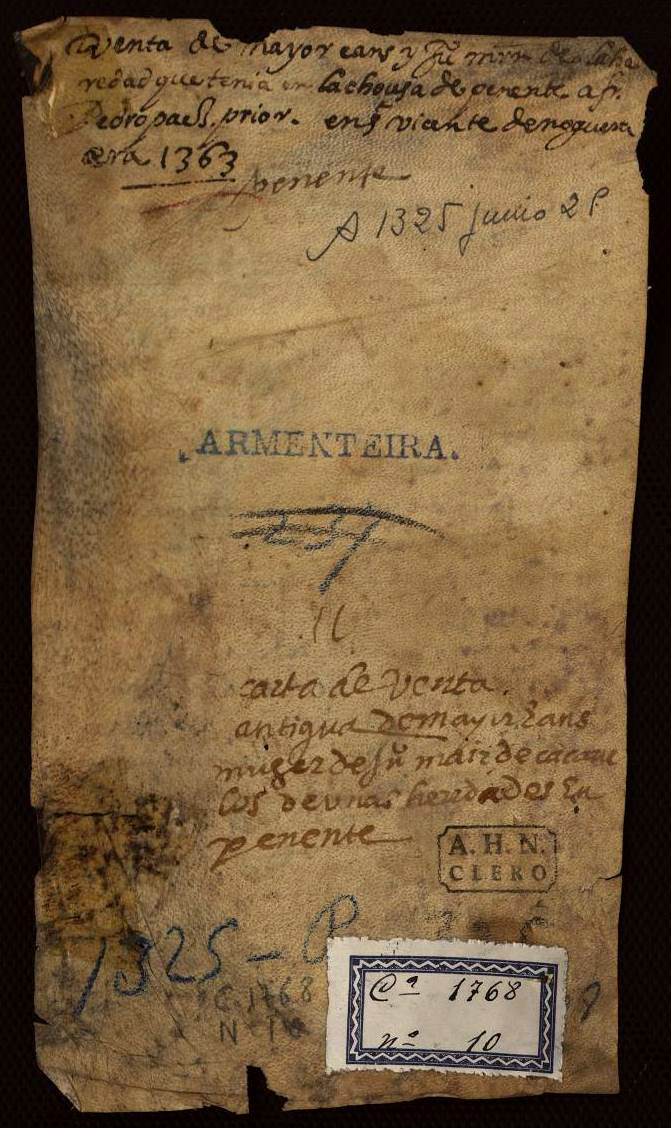 Venta de mayor eans y Ju mrn de la he
redad que tenia en la chousa de penente a fr.
Pedro paes. prior. en s vicente de noguera
era 1363
penente
A 1325 Junio 25
ARMENTEIRA.
237
11
carta de Venta.
antigua de mayor Eans
muger de Ju mariz de
los de unas heredades En
penente
A. H. N.
CLERO
1325 - P
C. 1768
N 10
Cª 1768
nº 10